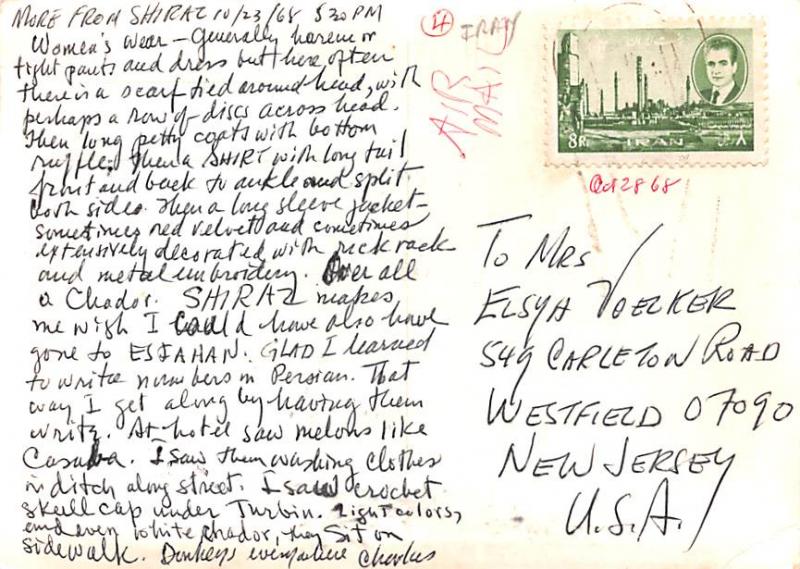 MORE FROM SHIRAZ 10/23/68 530 PM
Women's wear - Generally harem or
tight pants and dress but here often
there is a scarf tied around head, with
perhaps a row of discs across head.
Then long petty coats with bottom
ruffle. Then a SHIRT with long tail
front and back to ankle and split
both sides. Then a long sleeve jacket-
sometimes red velvet and sometimes
extensively decorated with rick rack
and metal embroidery. Over all
a Chador. SHIRAZ makes
me wish I could have also have
gone to ESFAHAN. GLAD I learned
to write numbers in Persian. That
way I get along by having them
write. At hotel saw melons like
Casaba. I saw them washing clothes
in ditch along street. I saw crochet
skull cap under Turbin. Light colors,
and even white chador, they sit on
sidewalk. Donkeys everywhere Charles
4
IRAN
AIR
MAIL
8R
IRAN
Oct 28 68
To Mrs
ELSYA VOELKER
549 CARLETON ROAD
WESTFIELD 07090
NEW JERSEY
U.S.A.